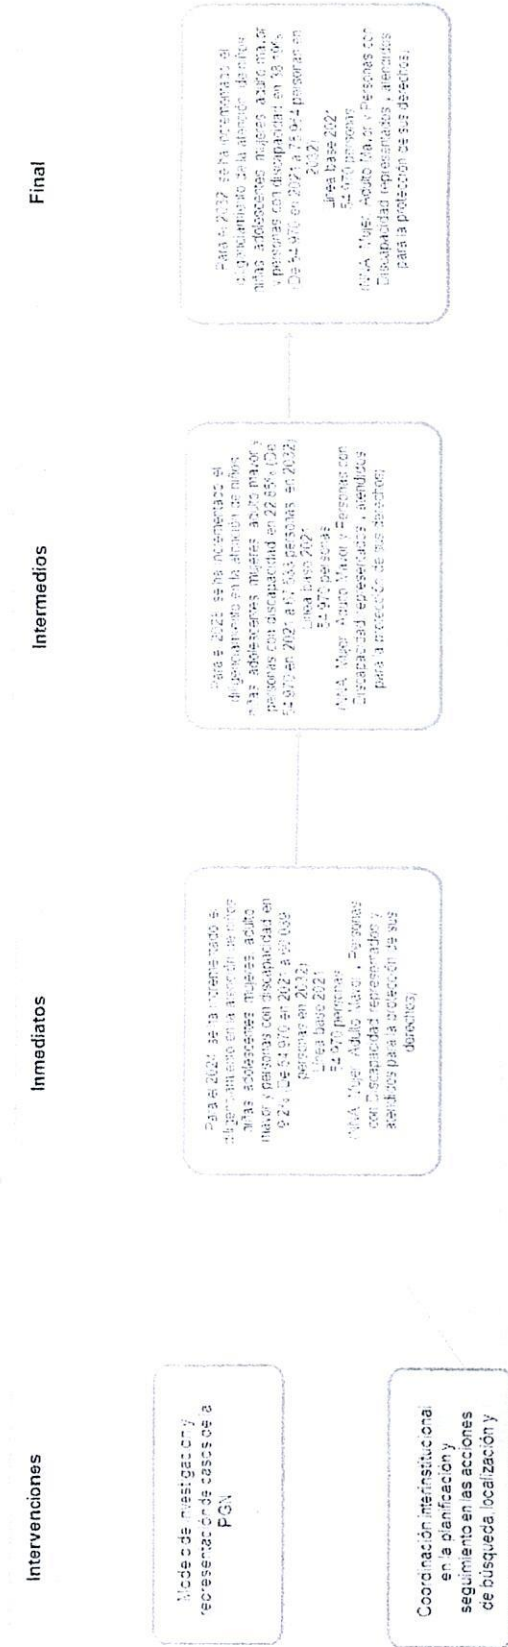 Intervenciones
Inmediatos
Intermedios
Final
Modelo de investigación y
representación de casos de la
PGN
Coordinación interinstitucional
en la planificación y
seguimiento en las acciones
de búsqueda, localización y
Para el 2024 se ha incrementado el
diligenciamiento en la atención de niños
niñas adolescentes mujeres adulto
mayor y personas con discapacidad en
9.2% (De 54,970 en 2021 a
personas en 2032)
Línea base 2021
54,970 personas
(NNA, Mujer, Adulto Mayor, Personas
con Discapacidad representados y
atendidos para la protección de sus
derechos)
Para el se ha incrementado el
diligenciamiento en la atención de niños
niñas adolescentes mujeres adulto mayor y
personas con discapacidad en 22.85% (De
54,970 en 2021 a 67,533 personas en 2032)
Línea base 2021
54,970 personas
(NNA, Mujer, Adulto Mayor y Personas con
Discapacidad representados, atendidos
para la protección de sus derechos)
Para el 2032 se ha incrementado el
diligenciamiento de la atención de niños
niñas adolescentes mujeres adulto mayor
y personas con discapacidad en
(De 54,970 en 2021 a personas en
2032)
Línea base 2021
54,970 personas
(NNA, Mujer, Adulto Mayor y Personas con
Discapacidad representados, atendidos
para la protección de sus derechos)